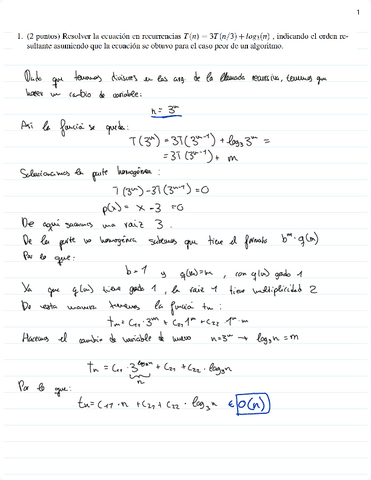 1
1. (2 puntos) Resolver la ecuación en recurrencias T(n) = 3T(n/3) + log₃(n) , indicando el orden re-
sultante asumiendo que la ecuación se obtuvo para el caso peor de un algoritmo.
Dado que tenemos divisiones en los arg. de la llamada recursiva, tenemos que
hacer un cambio de variable:
n = 3ᵐ
Así la función se queda:
T(3ᵐ) = 3T(3ᵐ⁻¹) + log₃3ᵐ =
= 3T(3ᵐ⁻¹) + m
Solucionamos la parte homogénea:
T(3ᵐ) - 3T(3ᵐ⁻¹) = 0
p(x) = x - 3 = 0
De aquí sacamos una raíz 3.
De la parte no homogénea sabemos que tiene el formato bᵐ·q(m)
Por lo que:
b = 1 y q(m) = m , con q(m) grado 1
Ya que q(m) tiene grado 1, la raíz 1 tiene multiplicidad 2
De esta manera tenemos la función tₘ:
tₘ = c₁₁·3ᵐ + c₂₁1ᵐ + c₂₂ 1ᵐ·m
Hacemos el cambio de variable de nuevo n = 3ᵐ → log₃n = m
tₙ = c₁₁·3^(log₃n) + c₂₁ + c₂₂·log₃n
n
Por lo que:
tₙ = c₁₁·n + c₂₁ + c₂₂·log₃n ∈ O(n)